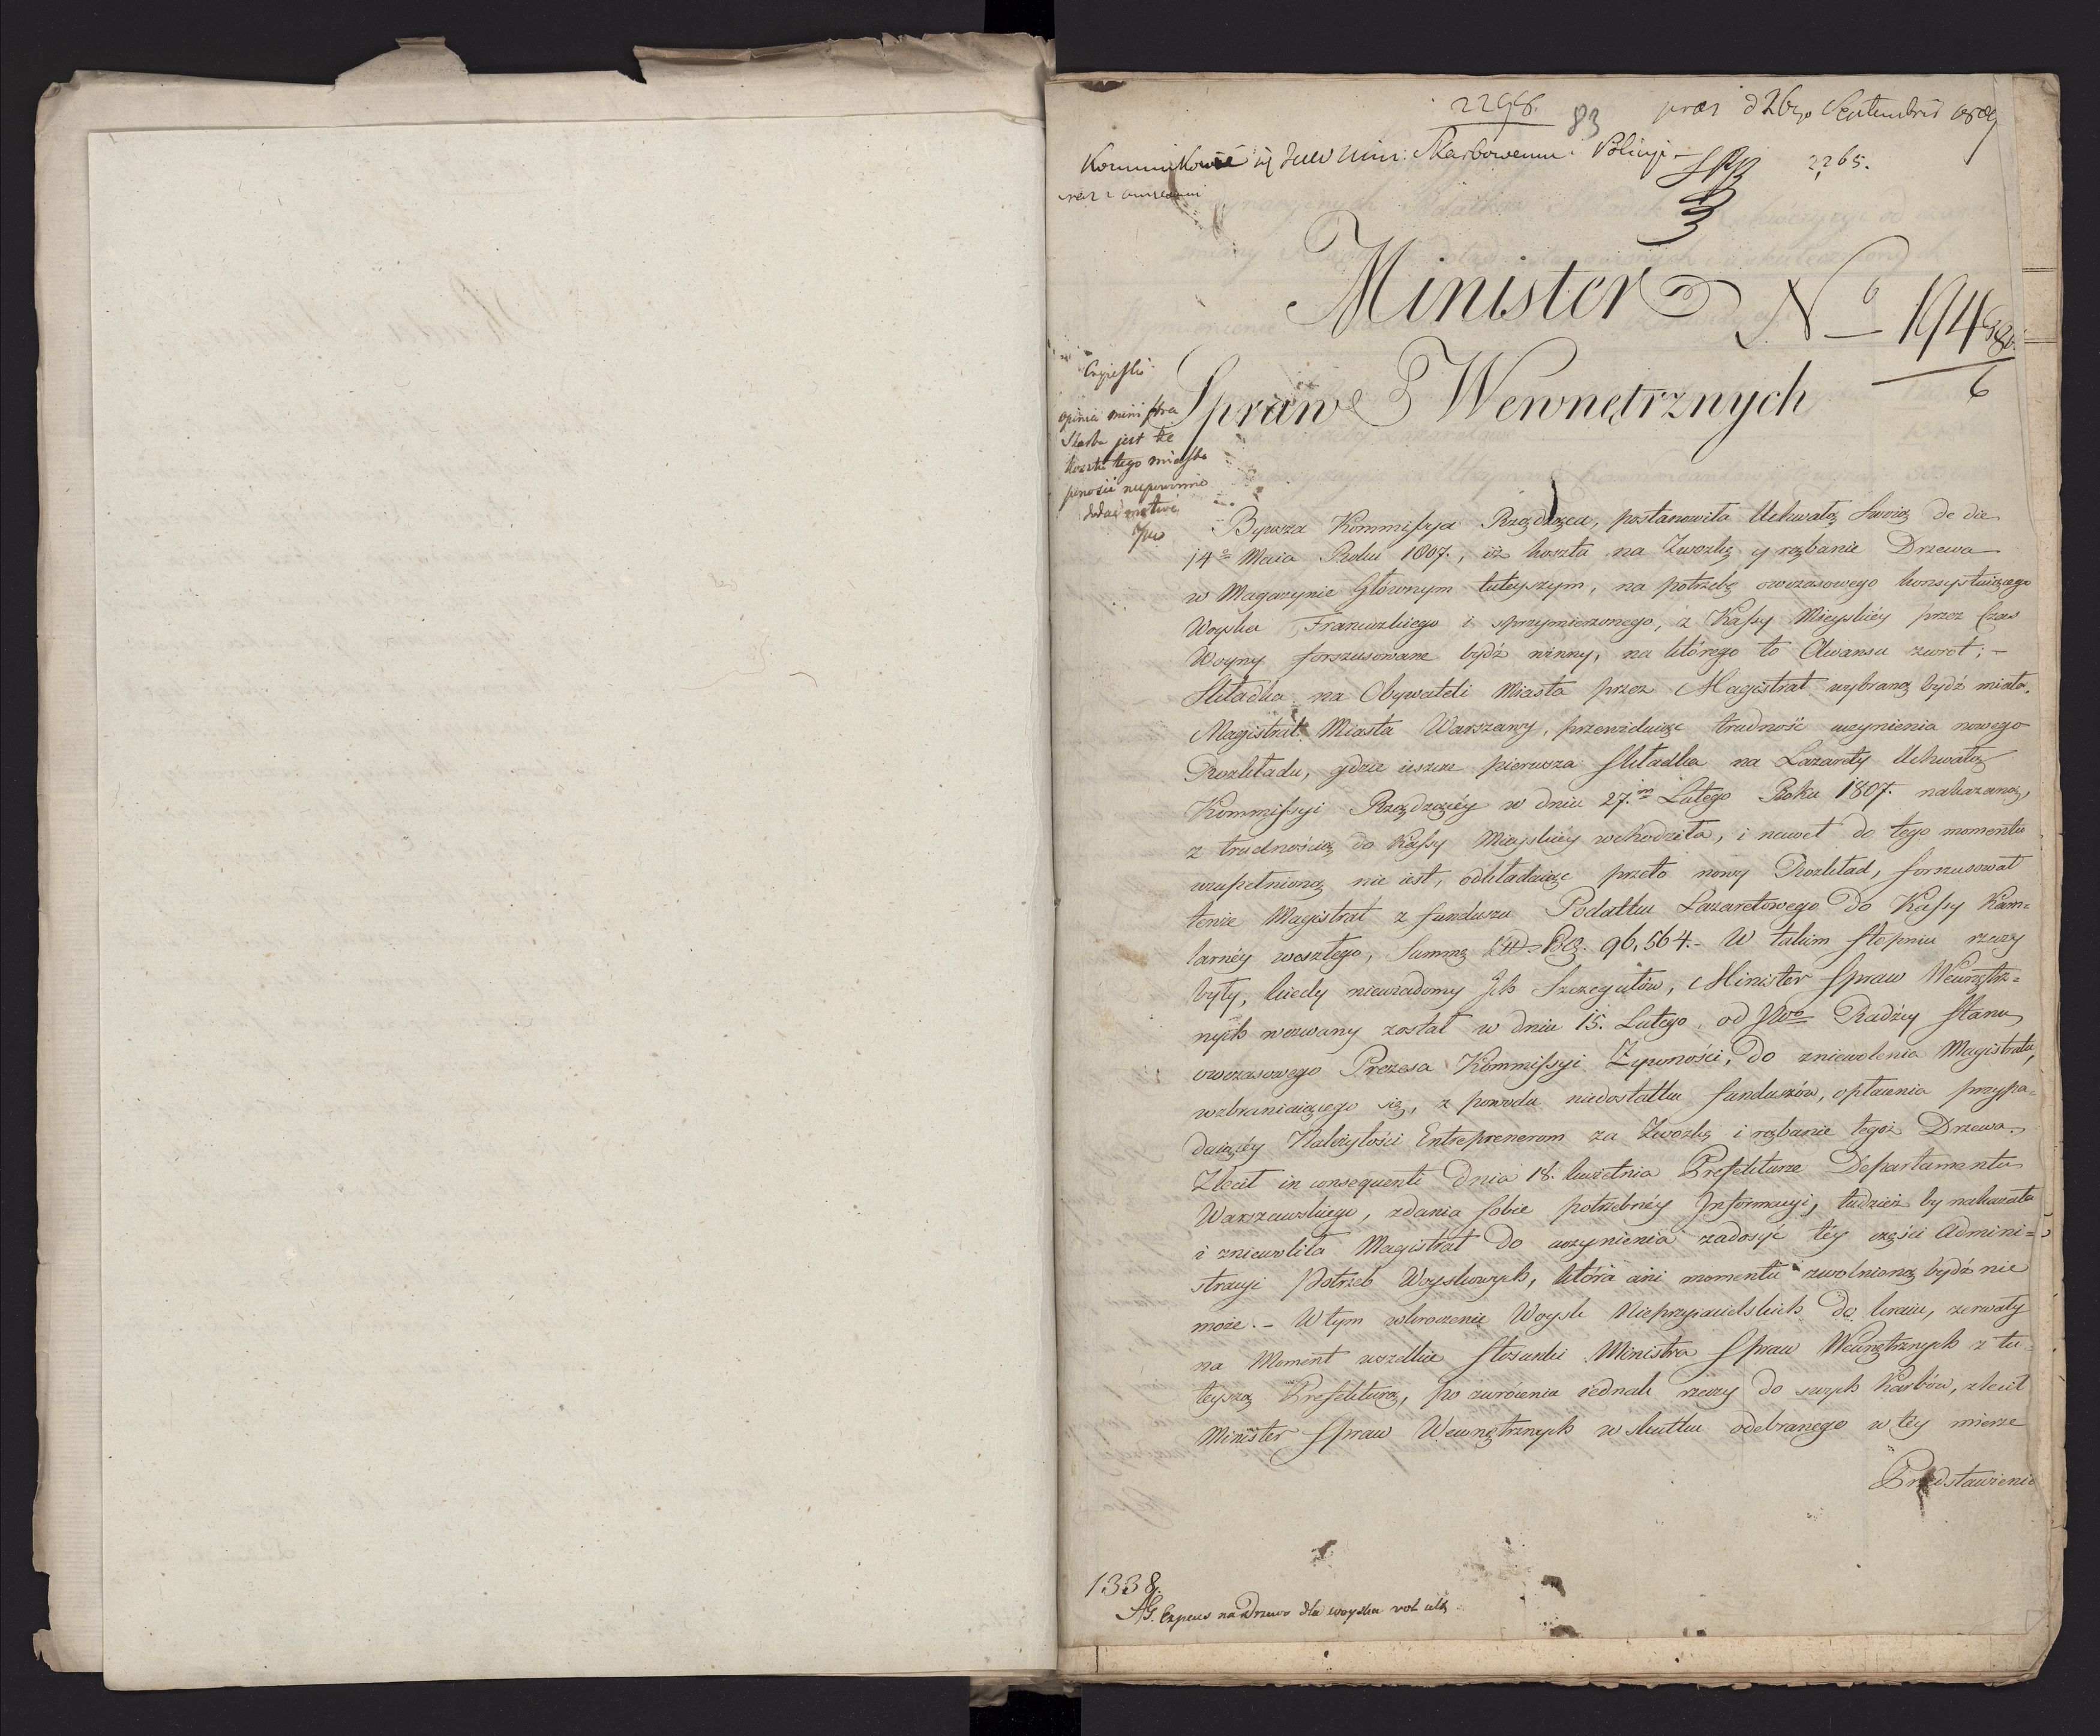 2298.
83
præs d 26go Septembris 1809
Kommunikować się JWW Mini: Skarbowemu i Policyi
2265.
Minister
No 194
6
Spraw Wewnętrznych
opinia ministra
Skarbu jest że
kosztu tego miasto
ponosić niepowinno
dodać motivi
Bywsza Kommissya Rządząca, postanowiła Uchwałą Swoią de die
14a Maia Roku 1807., iż koszta na Zwozkę y rąbanie Drzewa
w Magazynie Głównym tuteyszym, na potrzebę owczasowego konsystuiącego
Woyska Francuzkiego i sprzymierzonego, z Kassy Mieyskiéy przez Czas
Woyny forszusowane bydź winny, na którego to Awansu zwrot; -
Składka na Obywateli Miasta przez Magistrat wybraną bydź miała.
Magistrat Miasta Warszawy, przewiduiąc trudność uczynienia nowego
Rozkładu, gdzie ieszcze pierwsza Składka na Lazarety Uchwałą
Kommissyi Rządzącéy w dniu 27.m Lutego Roku 1807. nakazaną,
z trudnością do Kassy Mieyskiéy wchodziła, i nawet do tego momentu
uzupełnioną nie iest, odkładaiąc przeto nowy Rozkład, forszusował
tenże Magistrat z funduszu Podatku Lazaretowego do Kassy Kam=
larnéy weszłego, Summę 96,564.- W takim stopniu rzeczy
były, kiedy niewiadomy Ich Szczegułów, Minister Spraw Wewnętrz=
nych wezwany został w dniu 15. Lutego od JWo Radźcy Stanu
owczasowego Prezesa Kommissyi Żywności, do zniewolenia Magistratu,
wzbraniaiącego się, z powodu niedostatku funduszów, opłacenia przypa=
daiącéy Należytości Entreprenerom za Zwozkę i rąbanie tegoż Drzewa.
Zlecił in consequenti dnia 18. kwietnia Prefekturze Departamentu
Warszawskiego, zdania sobie potrzebnéy Informacyi, tudzież by nakazała
i zniewoliła Magistrat do uczynienia zadosyć téy części Admini=
stracyi Potrzeb Woyskowych, która ani momentu zwolnioną bydź nie
może. - W tym wkroczenie Woysk Nieprzyiacielskich do kraiu, zerwały
na Moment wszelkie stosunki Ministra Spraw Wewnętrznych z tu=
teyszą Prefekturą, po zwróceniu iednak rzeczy do swych Karbów, zlecił
Minister Spraw Wewnętrznych w skutku odebranego w téy mierze
Przedstawienia
1338.
na Drzewo dla woyska vol